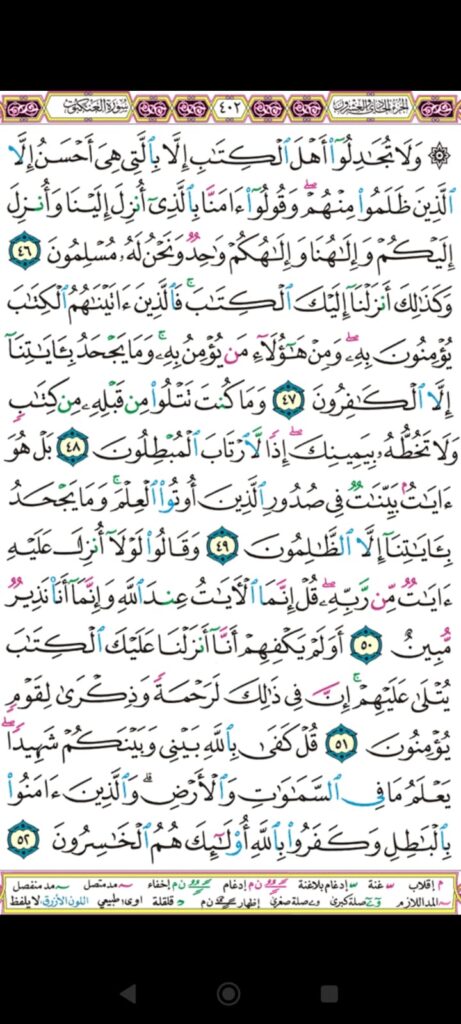 الجزء الحادي والعشرون ٤٠٢ سورة العنكبوت
۞ وَلَا تُجَٰدِلُوٓا۟ أَهْلَ ٱلْكِتَٰبِ إِلَّا بِٱلَّتِى هِىَ أَحْسَنُ إِلَّا
ٱلَّذِينَ ظَلَمُوا۟ مِنْهُمْ ۖ وَقُولُوٓا۟ ءَامَنَّا بِٱلَّذِىٓ أُنزِلَ إِلَيْنَا وَأُنزِلَ
إِلَيْكُمْ وَإِلَٰهُنَا وَإِلَٰهُكُمْ وَٰحِدٌ وَنَحْنُ لَهُۥ مُسْلِمُونَ ٤٦
وَكَذَٰلِكَ أَنزَلْنَآ إِلَيْكَ ٱلْكِتَٰبَ ۚ فَٱلَّذِينَ ءَاتَيْنَٰهُمُ ٱلْكِتَٰبَ
يُؤْمِنُونَ بِهِۦ ۖ وَمِنْ هَٰٓؤُلَآءِ مَن يُؤْمِنُ بِهِۦ ۚ وَمَا يَجْحَدُ بِـَٔايَٰتِنَآ
إِلَّا ٱلْكَٰفِرُونَ ٤٧ وَمَا كُنتَ تَتْلُوا۟ مِن قَبْلِهِۦ مِن كِتَٰبٍ
وَلَا تَخُطُّهُۥ بِيَمِينِكَ ۖ إِذًا لَّٱرْتَابَ ٱلْمُبْطِلُونَ ٤٨ بَلْ هُوَ
ءَايَٰتٌۢ بَيِّنَٰتٌ فِى صُدُورِ ٱلَّذِينَ أُوتُوا۟ ٱلْعِلْمَ ۚ وَمَا يَجْحَدُ
بِـَٔايَٰتِنَآ إِلَّا ٱلظَّٰلِمُونَ ٤٩ وَقَالُوا۟ لَوْلَآ أُنزِلَ عَلَيْهِ
ءَايَٰتٌ مِّن رَّبِّهِۦ ۖ قُلْ إِنَّمَا ٱلْـَٔايَٰتُ عِندَ ٱللَّهِ وَإِنَّمَآ أَنَا۠ نَذِيرٌ
مُّبِينٌ ٥٠ أَوَلَمْ يَكْفِهِمْ أَنَّآ أَنزَلْنَا عَلَيْكَ ٱلْكِتَٰبَ
يُتْلَىٰ عَلَيْهِمْ ۚ إِنَّ فِى ذَٰلِكَ لَرَحْمَةً وَذِكْرَىٰ لِقَوْمٍ
يُؤْمِنُونَ ٥١ قُلْ كَفَىٰ بِٱللَّهِ بَيْنِى وَبَيْنَكُمْ شَهِيدًا ۖ
يَعْلَمُ مَا فِى ٱلسَّمَٰوَٰتِ وَٱلْأَرْضِ ۗ وَٱلَّذِينَ ءَامَنُوا۟
بِٱلْبَٰطِلِ وَكَفَرُوا۟ بِٱللَّهِ أُو۟لَٰٓئِكَ هُمُ ٱلْخَٰسِرُونَ ٥٢
م إقلاب غنة إدغام بلاغنة ن م إدغام ن م إخفاء مد متصل مد منفصل
المد اللازم صلة كبرى صلة صغرى إظهار ن م قلقلة اوى: طبيعي اللون الأزرق: لا يلفظ